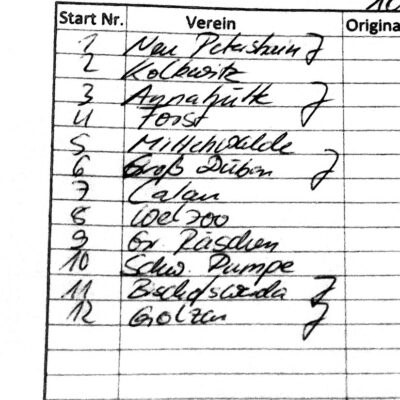 10
Start Nr. Verein Origina
1 Neu Petershain J
2 Kolkwitz
3 Annahütte J
4 Forst
5 Mittenwalde
6 Groß Düben J
7 Calau
8 Welzow
9 Gr. Räschen
10 Schw. Pumpe
11 Bischofswerda J
12 Golzen J